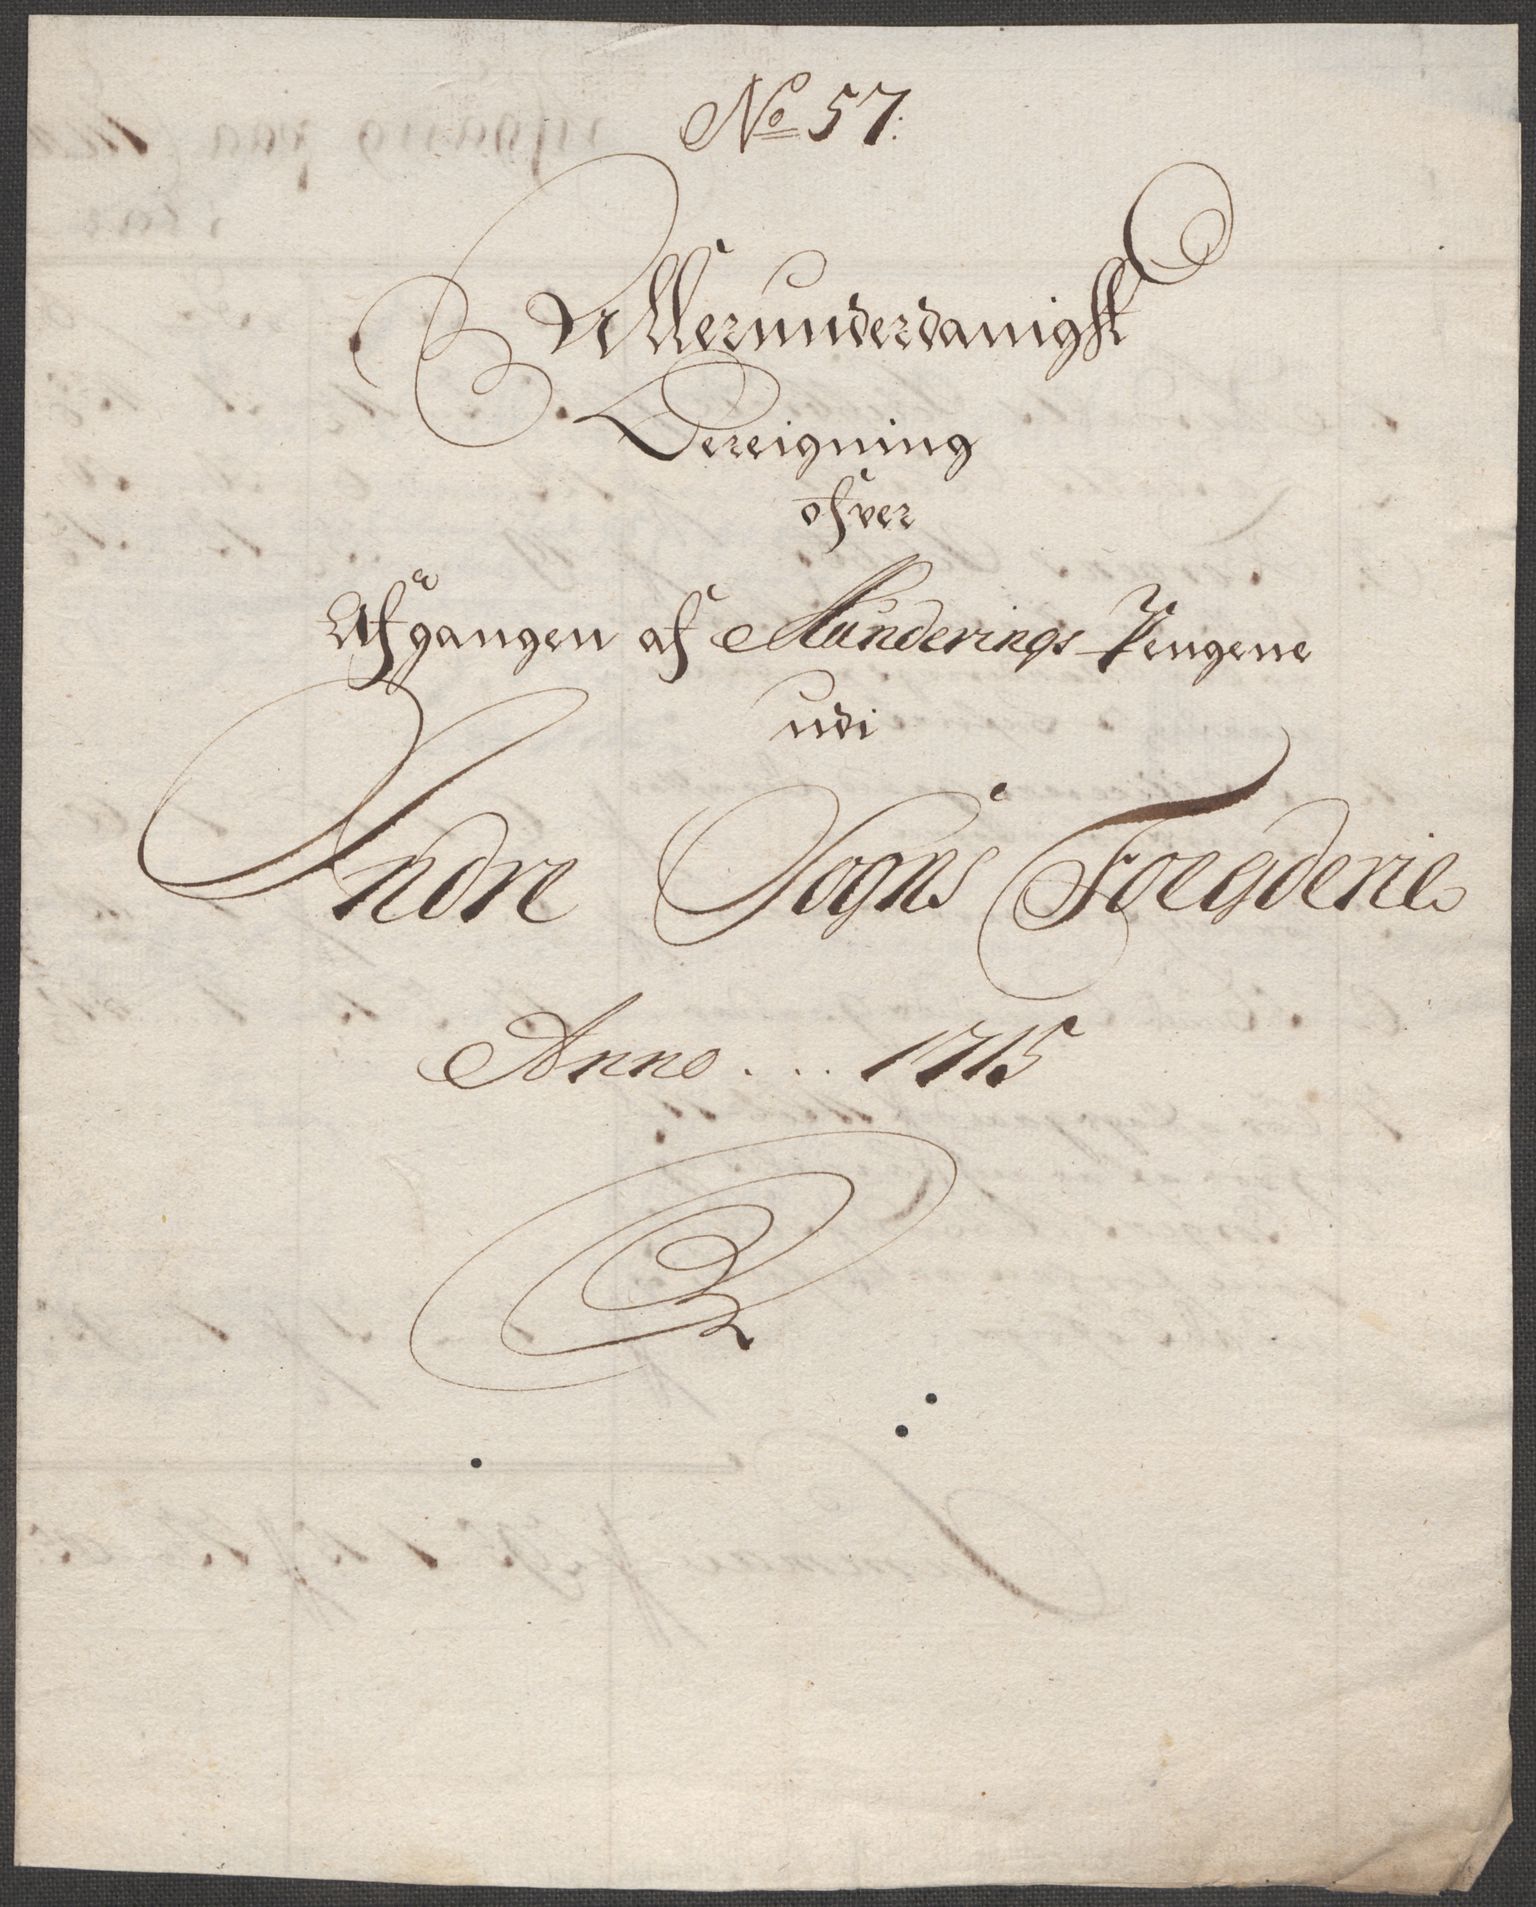 No 57:
Allerunderdanigst
Dereigning
ofver
Afgangen af Munderings Pengene
udi
Indre Sogns Foegderie
Anno .... 1715